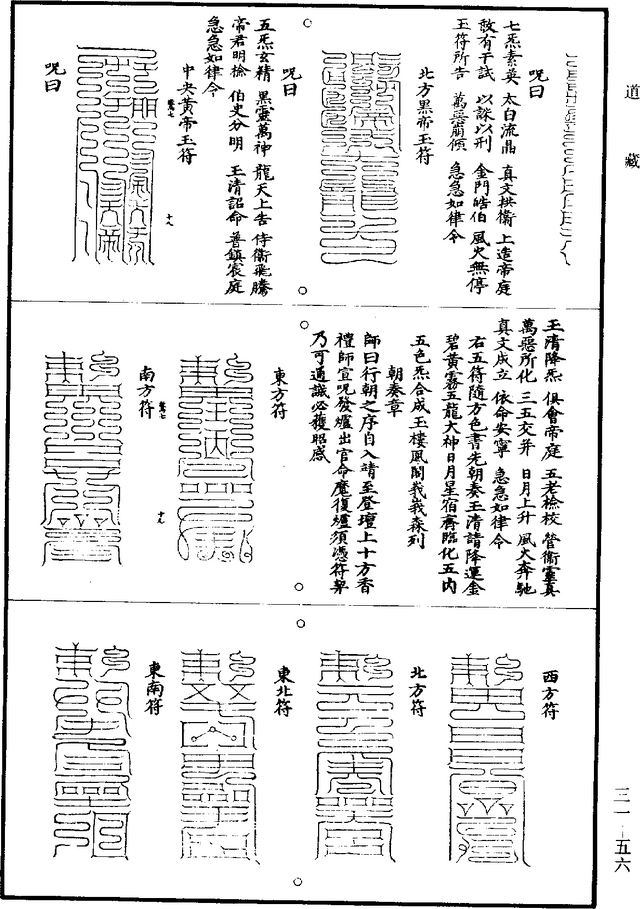 道藏
咒曰
七炁素英　太白流鼎　真文拱衛　上造帝庭
敢有干試　以誅以刑　金門皓伯　風火無停
玉符所告　萬惡崩傾　急急如律令
北方黑帝玉符
咒曰
五炁玄精　黑靈萬神　龍天上告　侍衛飛騰
帝君明檢　伯史分明　玉清詔命　普鎮宸庭
急急如律令
中央黃帝玉符
十八
咒曰
玉清降炁　俱會帝庭　五老檢校　營衛靈真
萬惡所化　三五交并　日月上升　風火奔馳
真文成立　依命安寧　急急如律令
右五符隨方色書先朝奏玉清請降運金
碧黃霧五龍大神日月星宿齊臨化五內
五色炁合成玉樓鳳閣峩峩森列
朝奏章
師曰行朝之序自入請至登壇上十方香
禮師宣咒發爐出官命魔復爐須憑符契
乃可通誠必獲昭感
東方符
十九
南方符
西方符
北方符
東北符
東南符
三一－五六